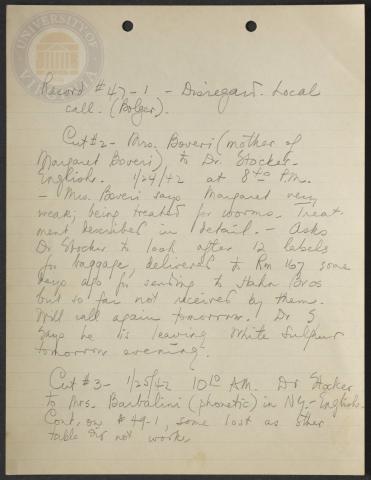 UNIVERSITY OF VIRGINIA
Record #47-1 - Disregard. Local
call. (Bolger).
Cut #2 - Mrs. Boveri (mother of
Margaret Boveri) to Dr. Stocker.
English. 1/24/42 at 8 40 P.M.
- Mrs. Boveri says Margaret very
weak; being treated for worms. Treat-
ment described in detail. - Asks
Dr Stocker to look after 12 labels
for baggage, delivered to Rm 167 some
days ago for sending to Hahn Bros
but so far not received by them.
Will call again tomorrow. Dr S
says he is leaving White Sulphur
tomorrow evening.
Cut #3 - 1/25/42 10 10 A.M. Dr Stocker
to Mrs. Barbalini (phonetic) in NY. - English.
Cont. on #49-1, some lost as other
table did not work.